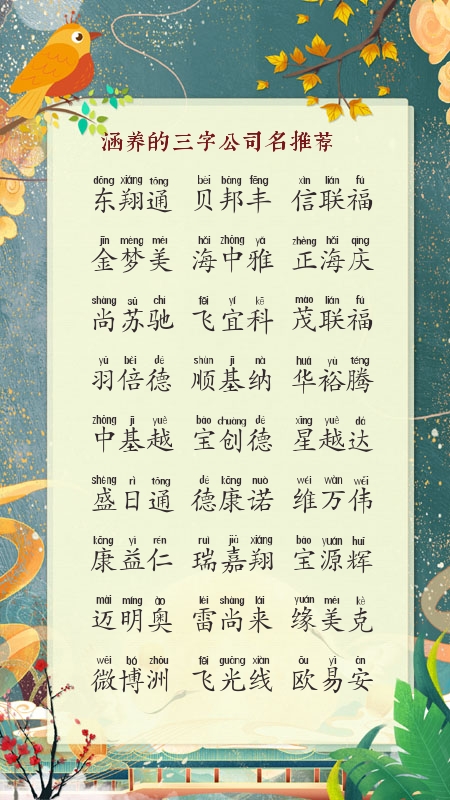 涵养的三字公司名推荐
dōng xiáng tōng bèi bāng fēng xìn lián fú
东翔通 贝邦丰 信联福
jīn mèng měi hǎi zhōng yǎ zhèng hǎi qìng
金梦美 海中雅 正海庆
shàng sū chí fēi yí kē mào lián fú
尚苏驰 飞宜科 茂联福
yǔ bèi dé shùn jī nà huá yù téng
羽倍德 顺基纳 华裕腾
zhōng jī yuè bǎo chuàng dé xīng yuè dá
中基越 宝创德 星越达
shèng rì tōng dé kāng nuò wéi wàn wěi
盛日通 德康诺 维万伟
kāng yì rén ruì jiā xiáng bǎo yuán huī
康益仁 瑞嘉翔 宝源辉
mài míng ào léi shàng lái yuán měi kè
迈明奥 雷尚来 缘美克
wēi bó zhōu fēi guāng xiàn ōu yì ān
微博洲 飞光线 欧易安